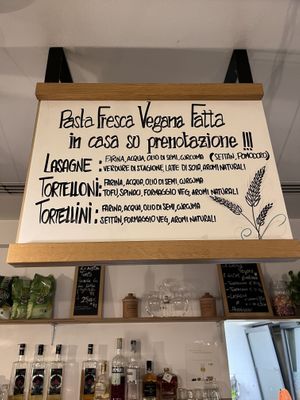 Pasta Fresca Vegana Fatta
in casa so prenotazione !!!
LASAGNE : FARINA, ACQUA, OLIO DI SEMI, CURCUMA (SEITAN, POMODORO)
VERDURE DI STAGIONE, LATTE DI SOIA, AROMI NATURALI
TORTELLONI : FARINA, ACQUA, OLIO DI SEMI, CURCUMA
TOFU, SPINACI, FORMAGGIO VEG, AROMI NATURALI
TORTELLINI : FARINA, ACQUA, OLIO DI SEMI, CURCUMA
SEITAN, FORMAGGIO VEG, AROMI NATURALI